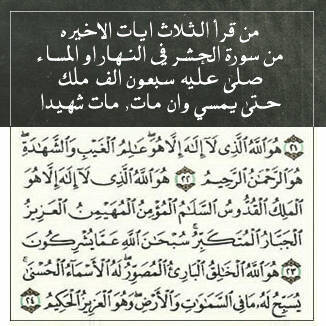 من قرأ الثلاث ايات الاخيره
من سورة الحشر في النهار او المساء
صلى عليه سبعون الف ملك
حتى يمسي وان مات, مات شهيدا
٢١ هُوَ اللَّهُ الَّذِي لَآ إِلَٰهَ إِلَّا هُوَ ۖ عَالِمُ الْغَيْبِ وَالشَّهَادَةِ ۖ
هُوَ الرَّحْمَٰنُ الرَّحِيمُ ٢٢ هُوَ اللَّهُ الَّذِي لَآ إِلَٰهَ إِلَّا هُوَ
الْمَلِكُ الْقُدُّوسُ السَّلَامُ الْمُؤْمِنُ الْمُهَيْمِنُ الْعَزِيزُ
الْجَبَّارُ الْمُتَكَبِّرُ ۚ سُبْحَانَ اللَّهِ عَمَّا يُشْرِكُونَ
٢٣ هُوَ اللَّهُ الْخَالِقُ الْبَارِئُ الْمُصَوِّرُ ۖ لَهُ الْأَسْمَاءُ الْحُسْنَىٰ ۚ
يُسَبِّحُ لَهُ مَا فِي السَّمَاوَاتِ وَالْأَرْضِ ۖ وَهُوَ الْعَزِيزُ الْحَكِيمُ ٢٤